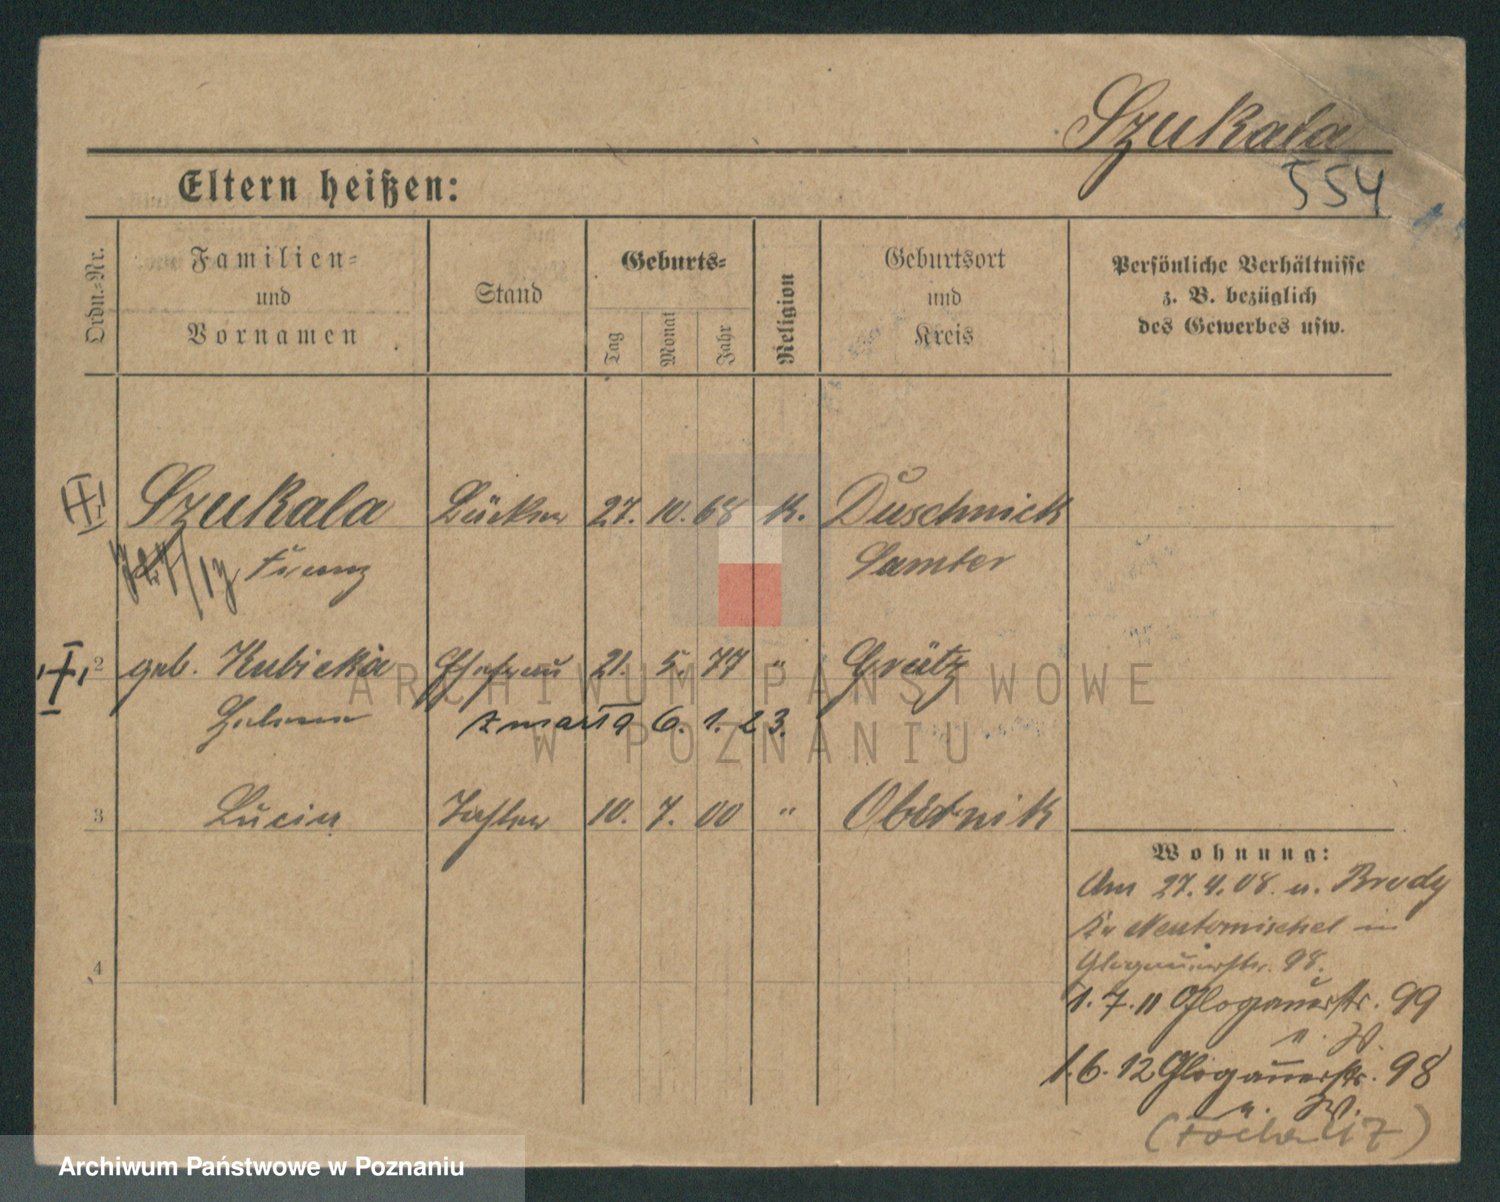 Szukala
554
Eltern heißen:
Ordn.-Nr.
Familien-
und
Vornamen
Stand
Geburts-
Tag
Monat
Jahr
Religion
Geburtsort
und
Kreis
Persönliche Verhältnisse
z. B. bezüglich
des Gewerbes usw.
Szukala Bäcker 27. 10. 68 K. Duschnick
Franz Samter
2 geb. Kubicka Ehefrau 21. 5. 77 " Grätz
zmarła 6. 1. 23.
3 Lucia Tochter 10. 7. 00 " Obersitzko
4
Wohnung:
Am 27.4.08. v. Brody
Kr Neutomischel in
Glogauerstr. 98.
1.7.11 Glogauerstr. 99
b. W.
1.6.12 Glogauerstr. 98
ARCHIWUM PAŃSTWOWE
W POZNANIU
Archiwum Państwowe w Poznaniu